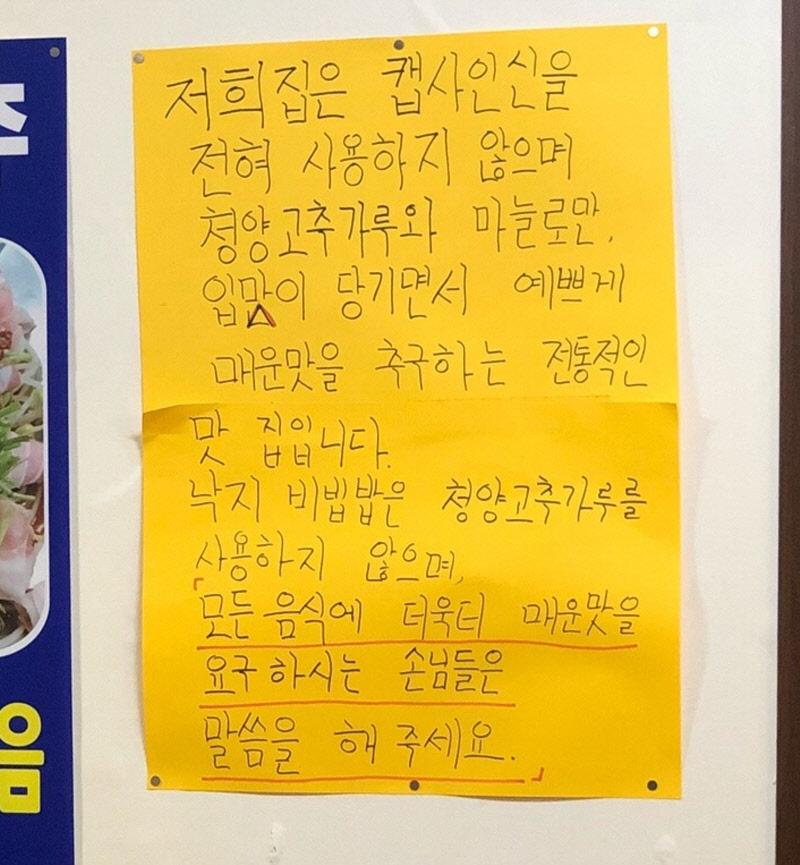 저희집은 캡사인신을
전혀 사용하지 않으며
청양고추가루와 마늘로만,
입맛이 당기면서 예쁘게
매운맛을 축구하는 전통적인
맛 집입니다.
낙지 비빔밥은 청양고추가루를
사용하지 않으며,
「모든 음식에 더욱더 매운맛을
요구 하시는 손님들은
말씀을 해 주세요.」
임